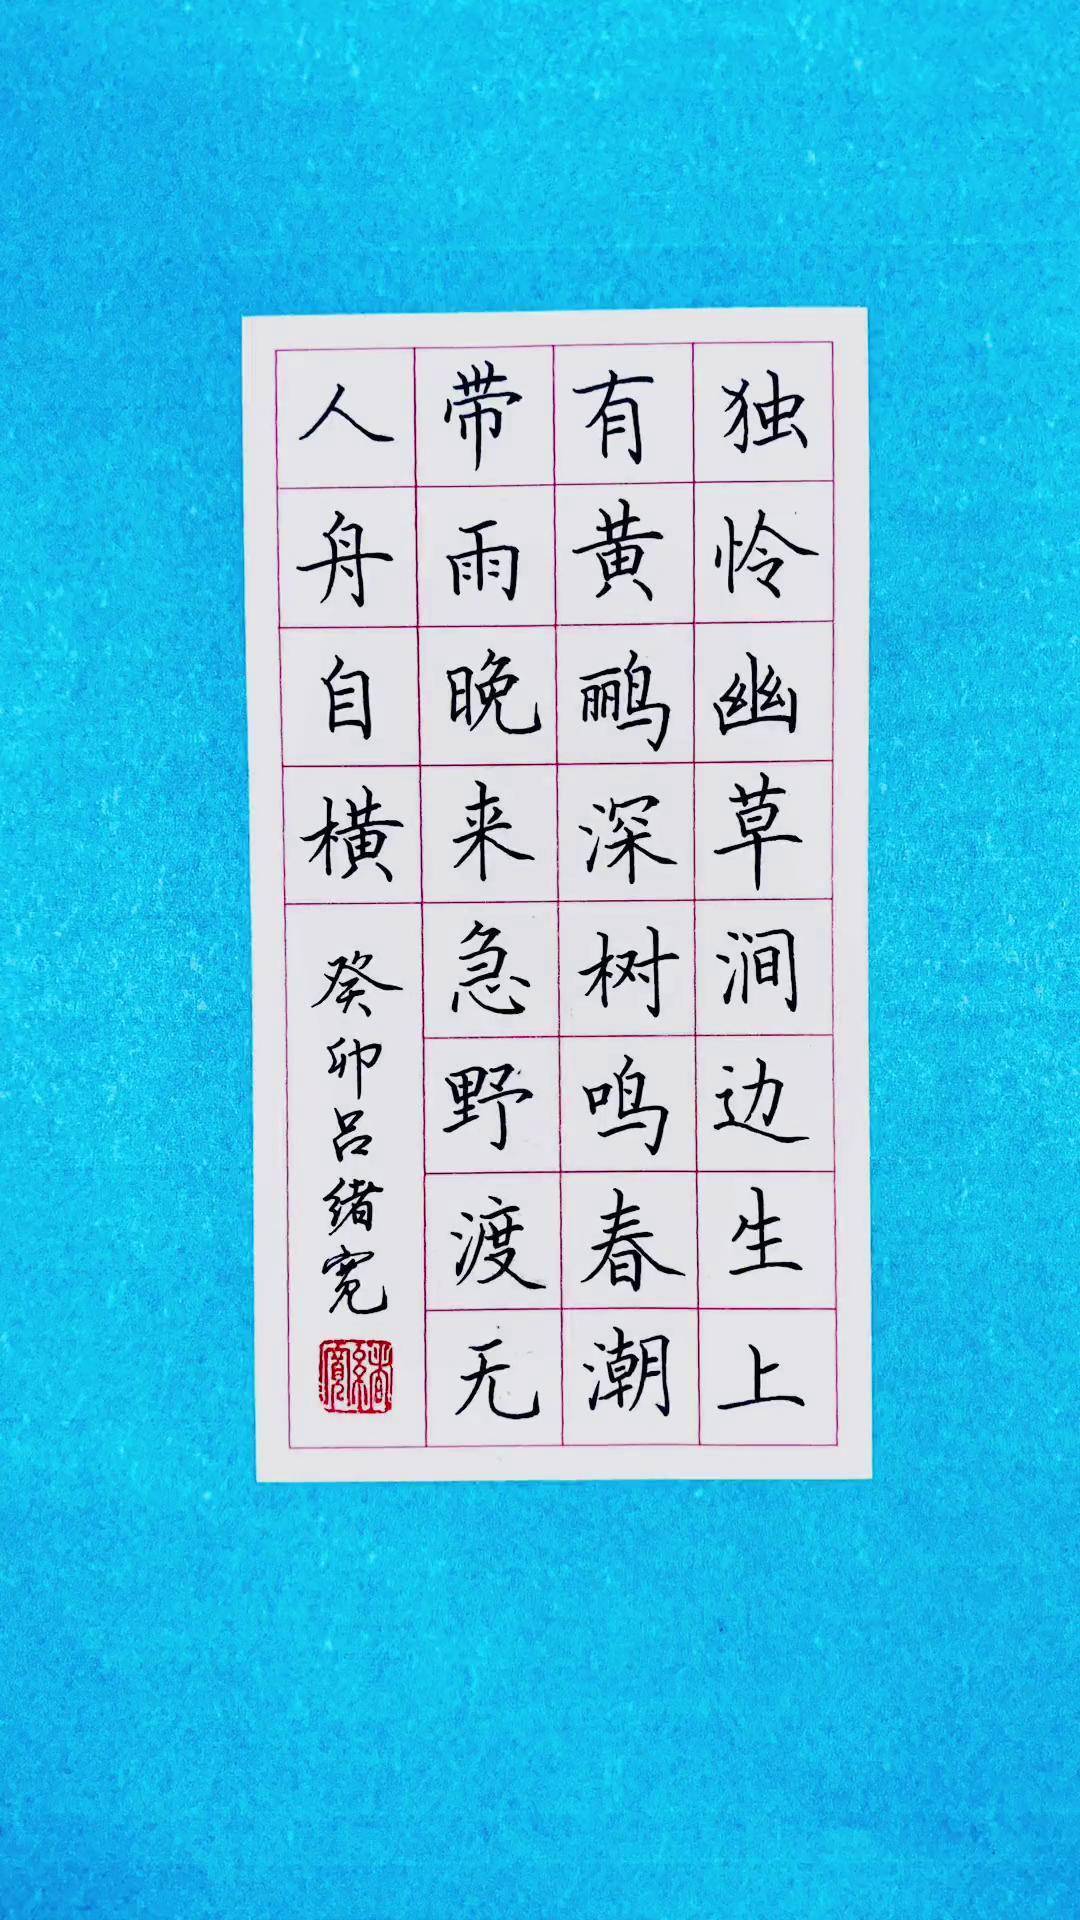 独怜幽草涧边生上
有黄鹂深树鸣春潮
带雨晚来急野渡无
人舟自横
癸卯吕绪宽
绪宽